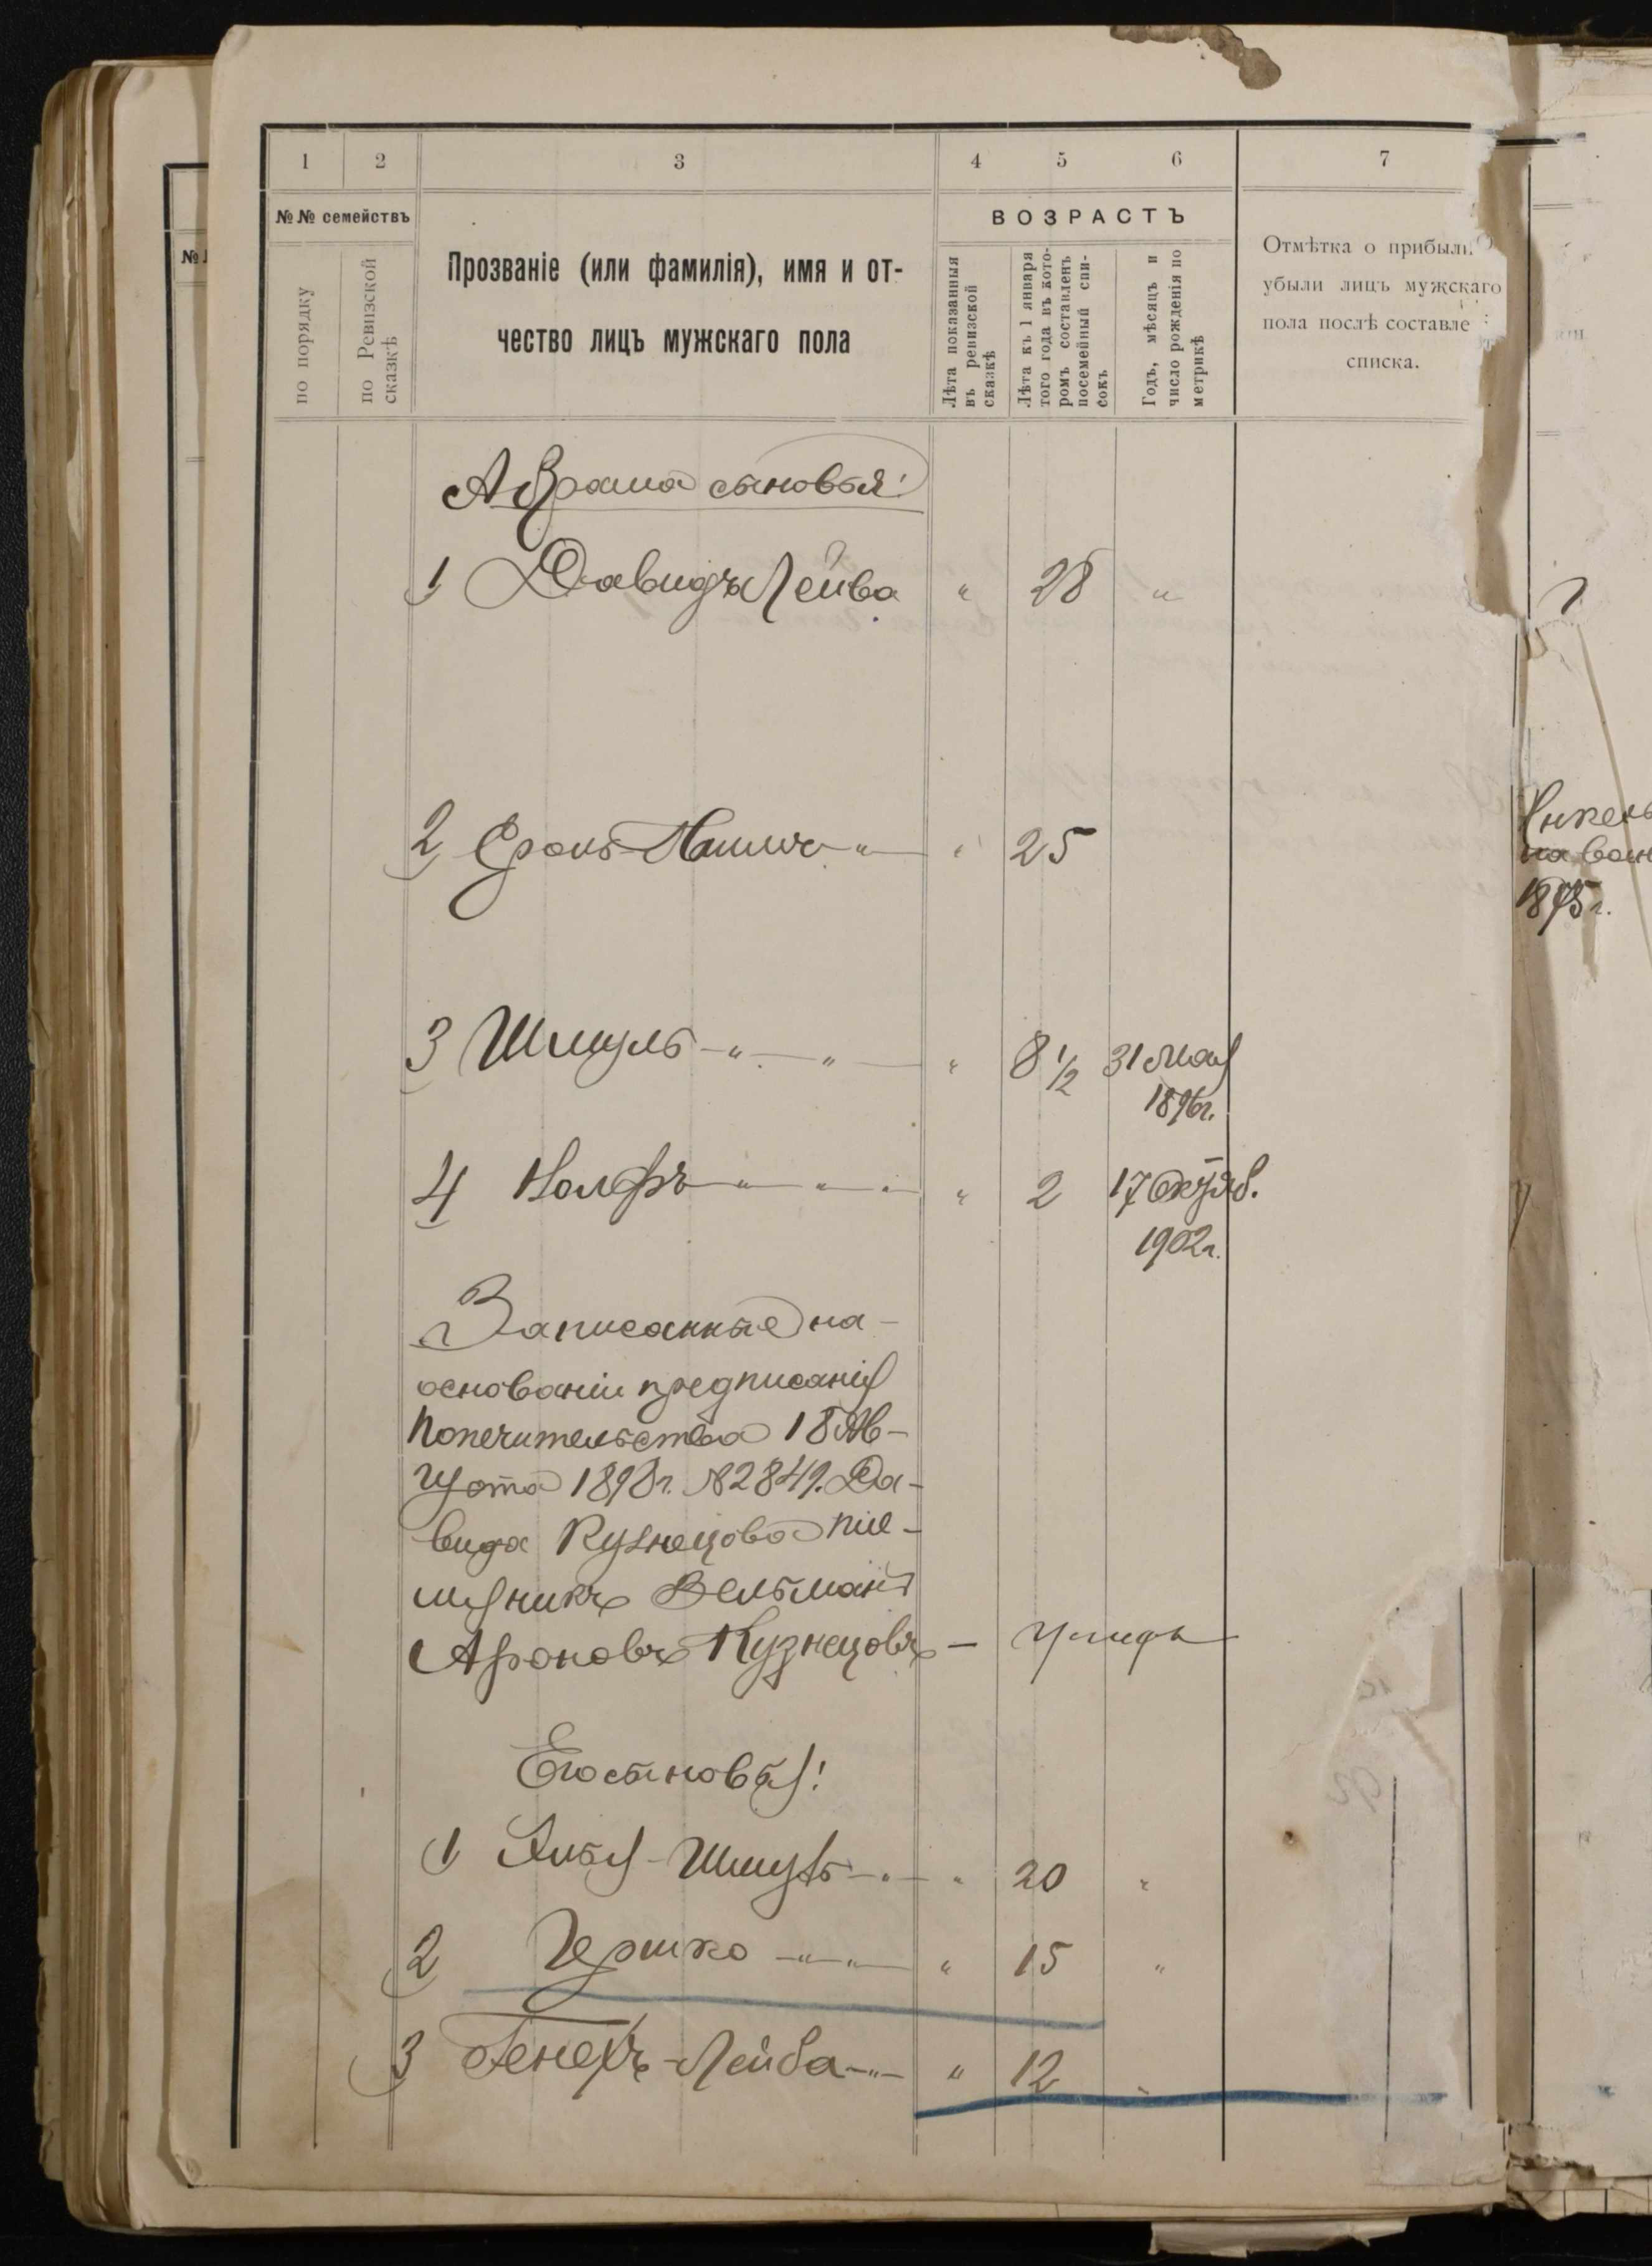 1 2 3 4 5 6 7
№№ семействъ
по порядку
по Ревизской сказкѣ
Прозваніе (или фамилія), имя и от-
чество лицъ мужскаго пола
ВОЗРАСТЪ
Лѣта показанныя
въ ревизской
сказкѣ
Лѣта къ 1 января
того года въ кото-
ромъ составленъ
посемейный спи-
сокъ
Годъ, мѣсяцъ и
число рожденія по
метрикѣ
Отмѣтка о прибыли
убыли лицъ мужскаго
пола послѣ составле
списка.
Абрама сыновья:
1 Давидъ Лейба " 28 "
2 25
3 Шмуль -"- " " 8 1/2 31 Мая
1896г.
4 " " " 2 17 Октяб.
1902г.
Записанные на
основаніи предписанія
Попечительства 18 Ав-
густа 1898г. № 2849. Да-
вида Кузнецова пле-
мяникъ Вельманъ
Ароновъ Кузнецовъ -
Его сыновья:
1 Шмуль " 20 "
2 Гершко " " " 15 "
3 Генехъ-Лейба " " 12 "
1875 г.